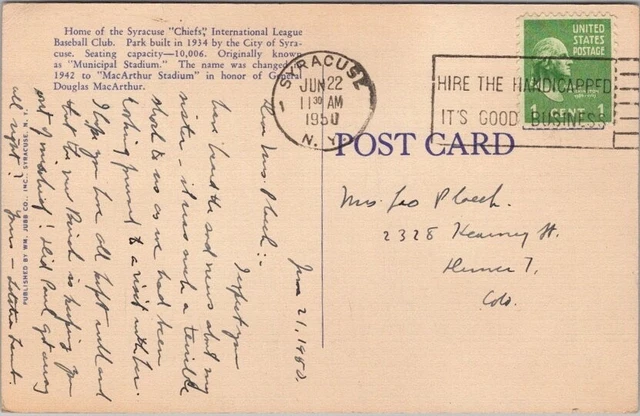 Home of the Syracuse "Chiefs", International League
Baseball Club. Park built in 1934 by the City of Syra-
cuse. Seating capacity—10,006. Originally known
as "Municipal Stadium." The name was changed
1942 to "MacArthur Stadium" in honor of General
Douglas MacArthur.
SYRACUSE
JUN 22
11 30 AM
1950
N. Y.
HIRE THE HANDICAPPED
IT'S GOOD BUSINESS
UNITED
STATES
POSTAGE
1
POST CARD
Mrs. Leo
2328 Kearney St.
Denver 7,
Colo.
June 21, 1950.
Dear Mrs. :-
I expect you
have heard the sad news about my
sister - it was such a terrible
shock to us as we had been
looking forward to a visit with her.
I hope you have all kept well and
that the new is keeping you
out of mischief! Did Paul get away
all right? Yours -
PUBLISHED BY WM. JUBB CO., INC., SYRACUSE, N. Y.